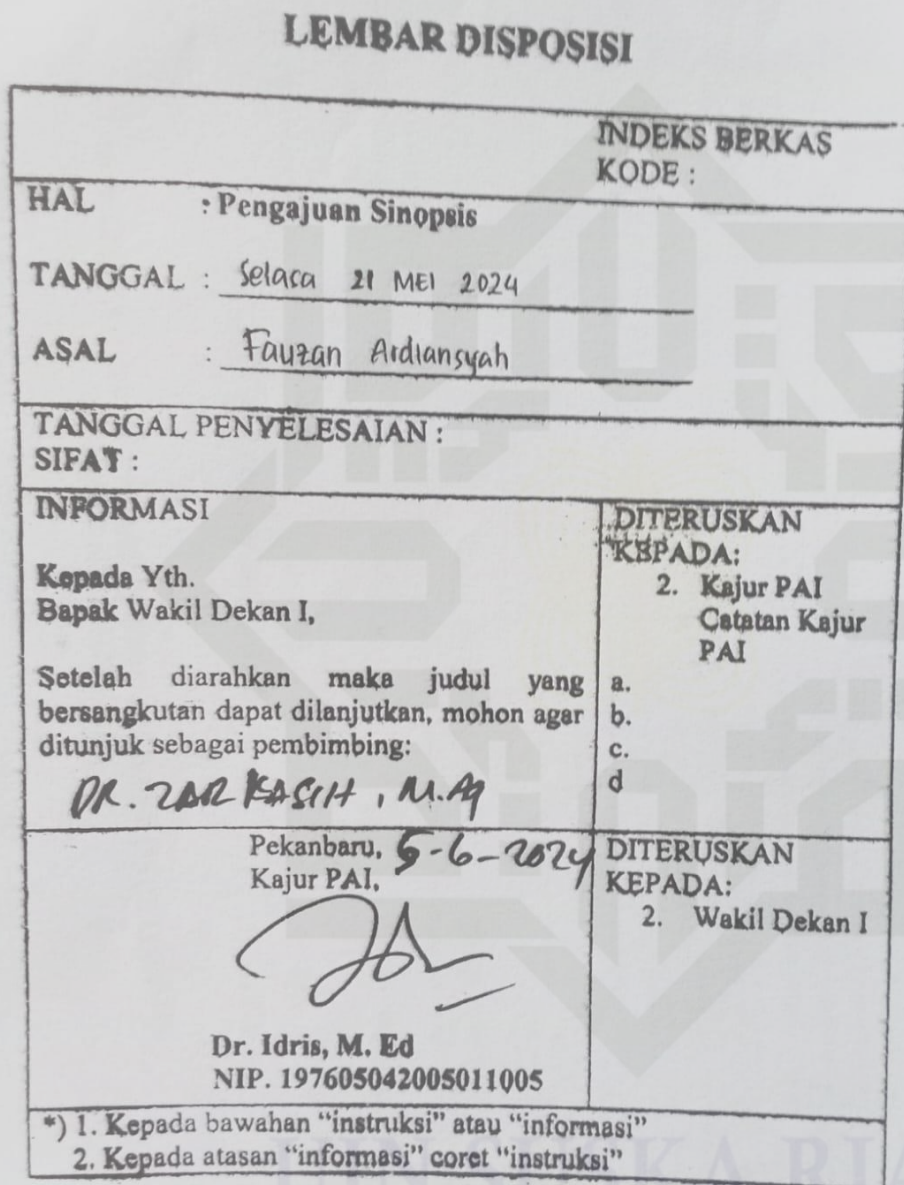 LEMBAR DISPOSISI
INDEKS BERKAS
KODE :
HAL : Pengajuan Sinopsis
TANGGAL : Selasa 21 MEI 2024
ASAL : Fauzan Ardiansyah
TANGGAL PENYELESAIAN :
SIFAT :
INFORMASI
Kepada Yth.
Bapak Wakil Dekan I,
Setelah diarahkan maka judul yang
bersangkutan dapat dilanjutkan, mohon agar
ditunjuk sebagai pembimbing:
DR. ZARKASIH, M.Ag
DITERUSKAN
KEPADA:
2. Kajur PAI
Catatan Kajur
PAI
a.
b.
c.
d
Pekanbaru, 5-6-2024
Kajur PAI,
Dr. Idris, M. Ed
NIP. 197605042005011005
DITERUSKAN
KEPADA:
2. Wakil Dekan I
*) 1. Kepada bawahan “instruksi” atau “informasi”
2. Kepada atasan “informasi” coret “instruksi”